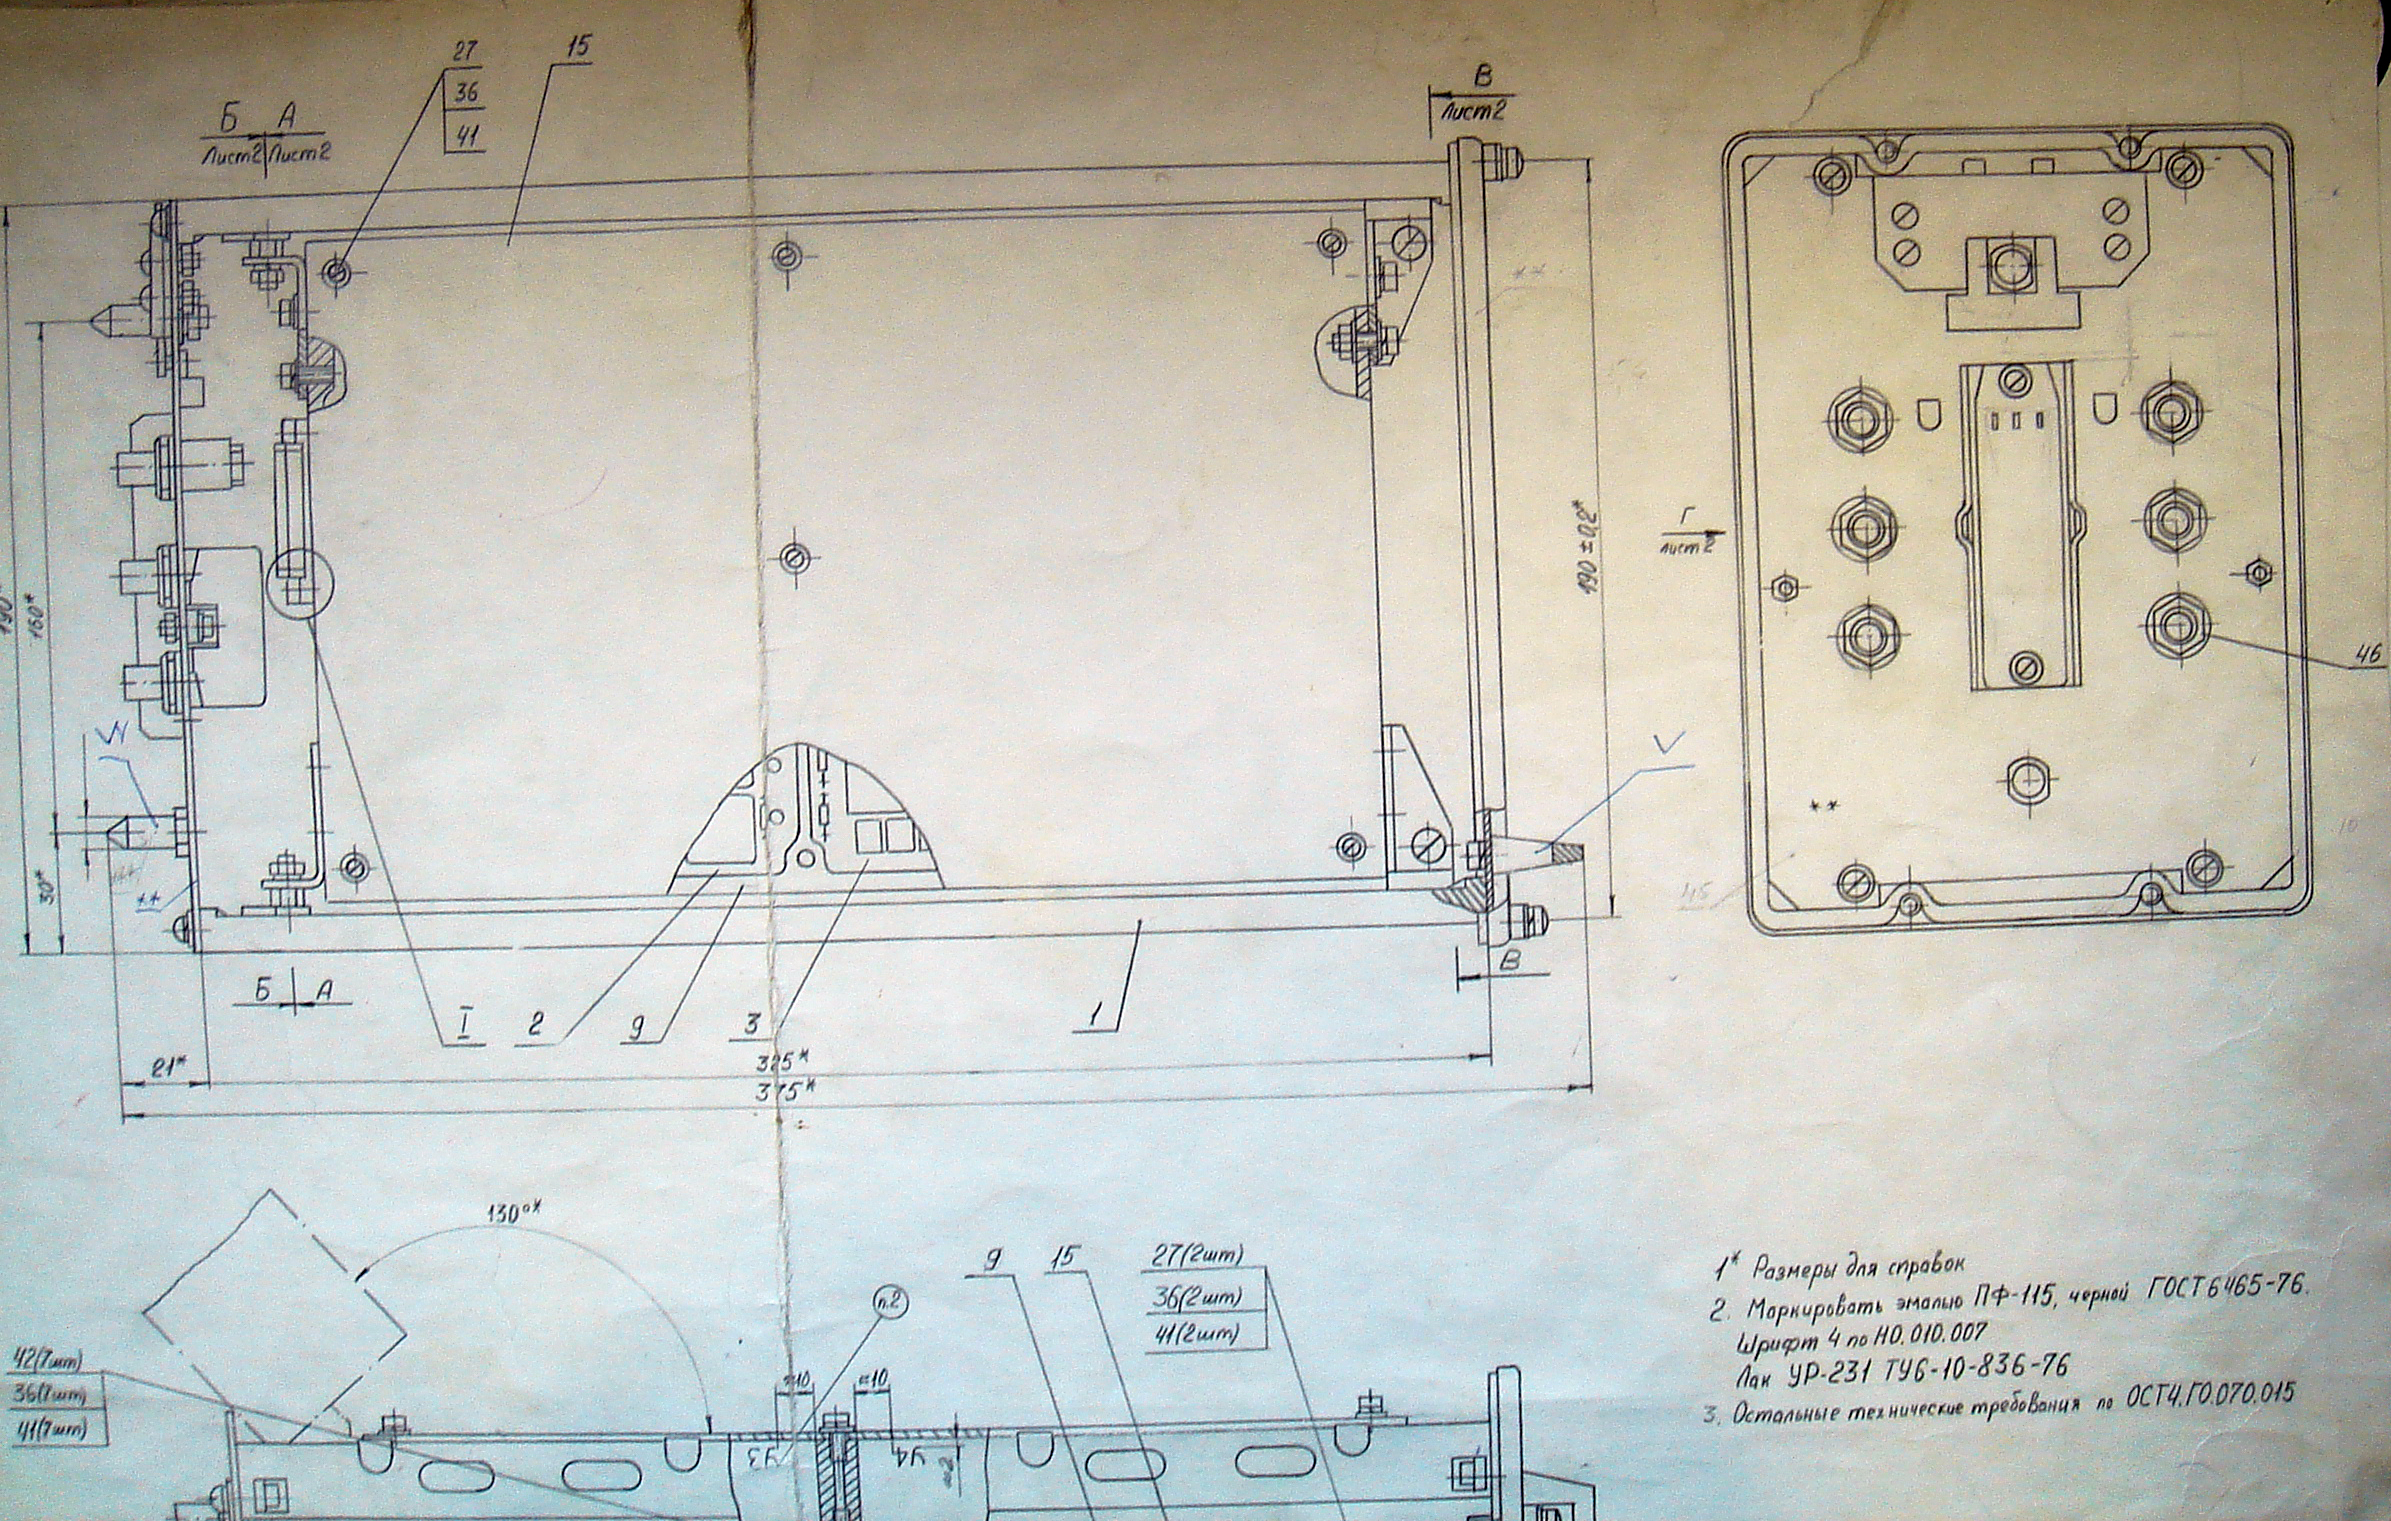 27
15
36
41
Б А
Лист2 Лист2
В
Лист2
190±0,2*
Г
Лист2
190*
160*
30*
46
**
**
45
Б А
В
I
2
9
3
1
21*
325*
375*
130°*
п.2
9
15
27(2шт)
36(2шт)
41(2шт)
42(7шт)
36(7шт)
41(7шт)
≈10
≈10
У3
У4
≈2
1* Размеры для справок
2. Маркировать эмалью ПФ-115, черной ГОСТ 6465-76.
Шрифт 4 по НО.010.007
Лак УР-231 ТУ6-10-836-76
3. Остальные технические требования по ОСТ4.ГО.070.015